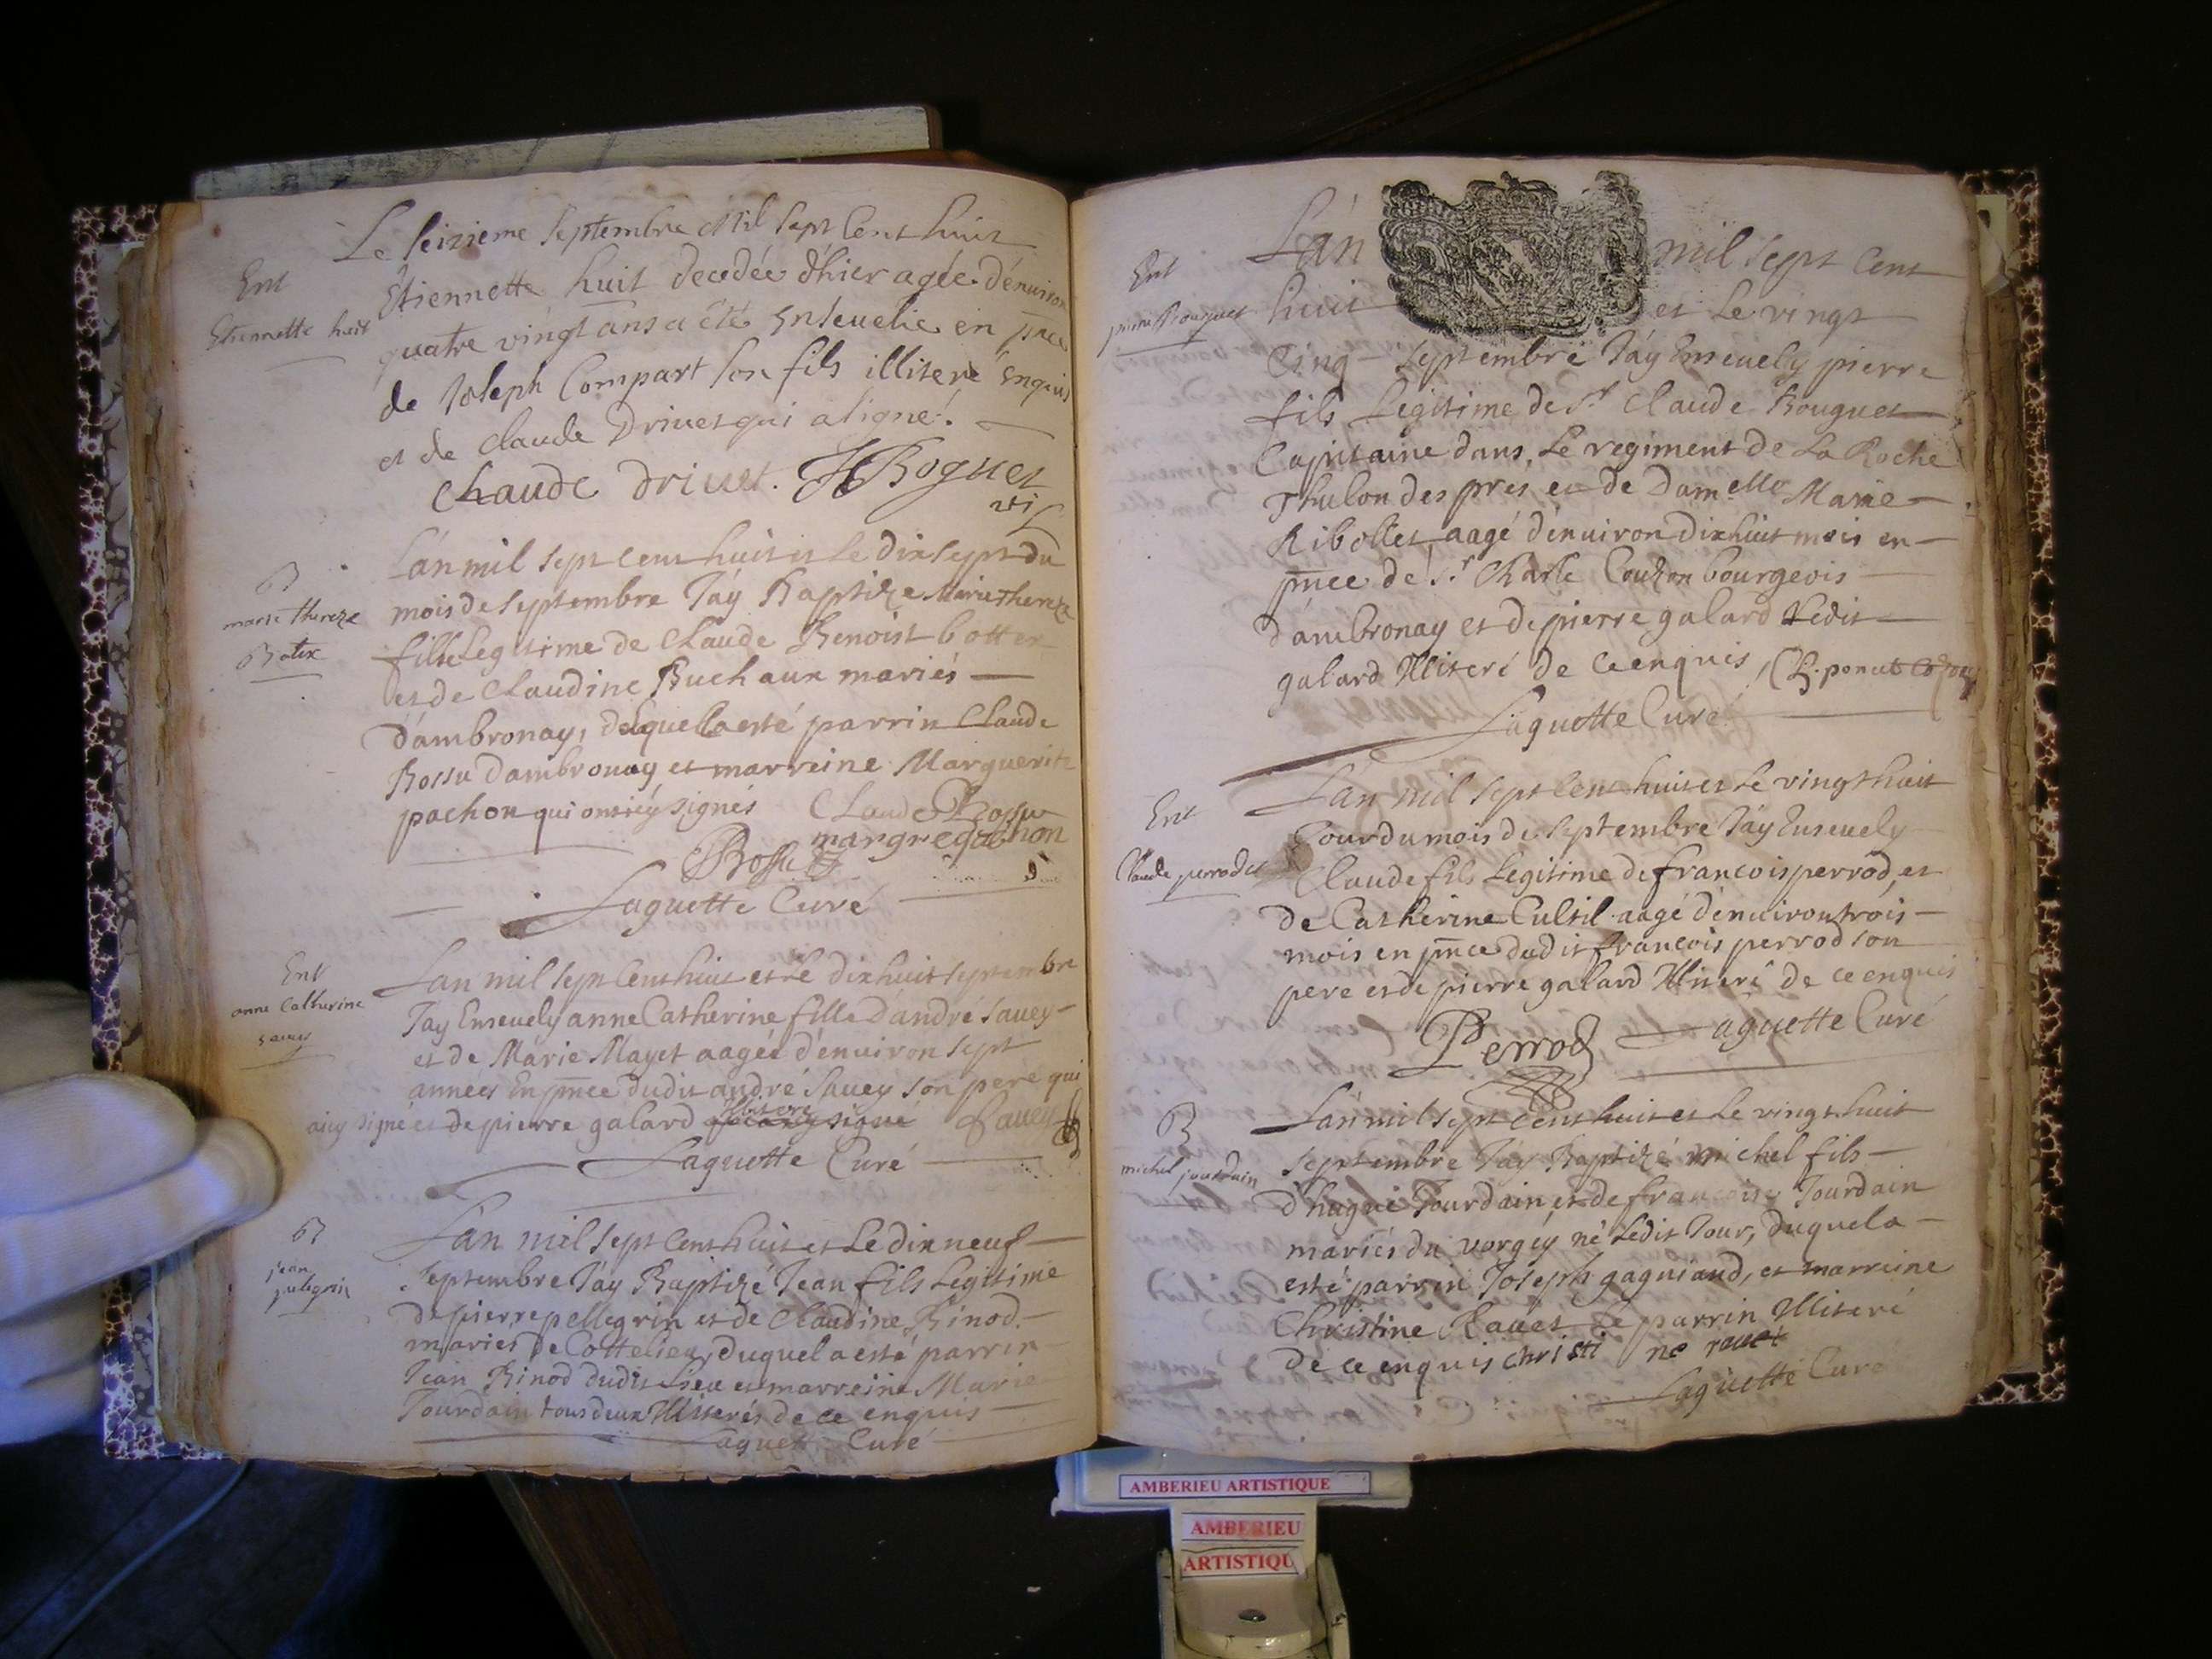 Le seizieme septembre Mil sept cent huit
Ent
Etiennette huit decedée d'hier agée d'enuiron
Etiennette huit
quatre vingt ans a été enseuelie en pnce
de Joseph Compart son fils illiteré enquis
et de claude Driuet qui a signé.
Claude Driuet. Boguet
vi
L'an mil sept cent huit et le dix sept du
B
marie thereze
Botex
mois de septembre J'ay Baptizé Marie Thereze
fille Legitime de Claude Benoist botter
et de Claudine Buchaux mariés
d'ambronay, de laquelle a esté parrin Claude
Bossu d'ambronay et marreine Marguerite
pachon qui ont icy signés Claude Bossu
margre pachon
Bossu
Laguette Curé
Ent
anne Catherine
sauey
L'an mil sept cent huit et le dix huit septembre
J'ay Enseuely anne Catherine fille d'andré sauey
et de Marie Mayet aagée d'enuiron sept
années En pnce dudit andré sauey son pere qui
a icy signé et de pierre galard Illiteré Sauey
Laguette Curé
B
jean
peligrin
L'an mil sept cent huit et Le dix neuf
septembre J'ay Baptizé Jean fils Legitime
de pierre pellegrin et de Claudine Binod
mariés de Cottelieu, duquel a esté parrin
Jean Binod dudit Lieu et marreine Marie
Jourdain tous deux Illiterés de ce enquis
Laguette Curé
L'an mil sept cent
Ent
pierre Bouguet
huit et Le vingt
Cinq septembre J'ay Enseuely pierre
fils Legitime de Sr Claude Bouguet
Capitaine dans Le regiment de La Roche
Thulon des pres et de Damelle Marie
Ribollet aagé d'enuiron dix huit mois en
pnce de Sr Charle Couzon bourgeois
d'ambronay et de pierre galard Ledit
galard Illiteré de ce enquis,
Laguette Curé
L'an mil sept cent huit et Le vingt huit
Ent
Claude perrodet
Jour du mois de septembre J'ay Enseuely
Claude fils Legitime de francois perrod, et
de Catherine Cultil aagé d'enuiron trois
mois en pnce dudit francois perrod son
pere et de pierre galard Illiteré de ce enquis
Perrod Laguette Curé
L'an mil sept cent huit et Le vingt huit
B
michel jourdain
septembre J'ay Baptizé michel fils
d'hugue Jourdain et de francoise Jourdain
mariés du vorgey né Ledit Jour, duquel a
esté parrin Joseph gagniand, et marreine
Christine Rauet Le parrin Illiteré
de ce enquis christi ne rauet
Laguette Curé
AMBERIEU ARTISTIQUE
AMBERIEU
ARTISTIQU